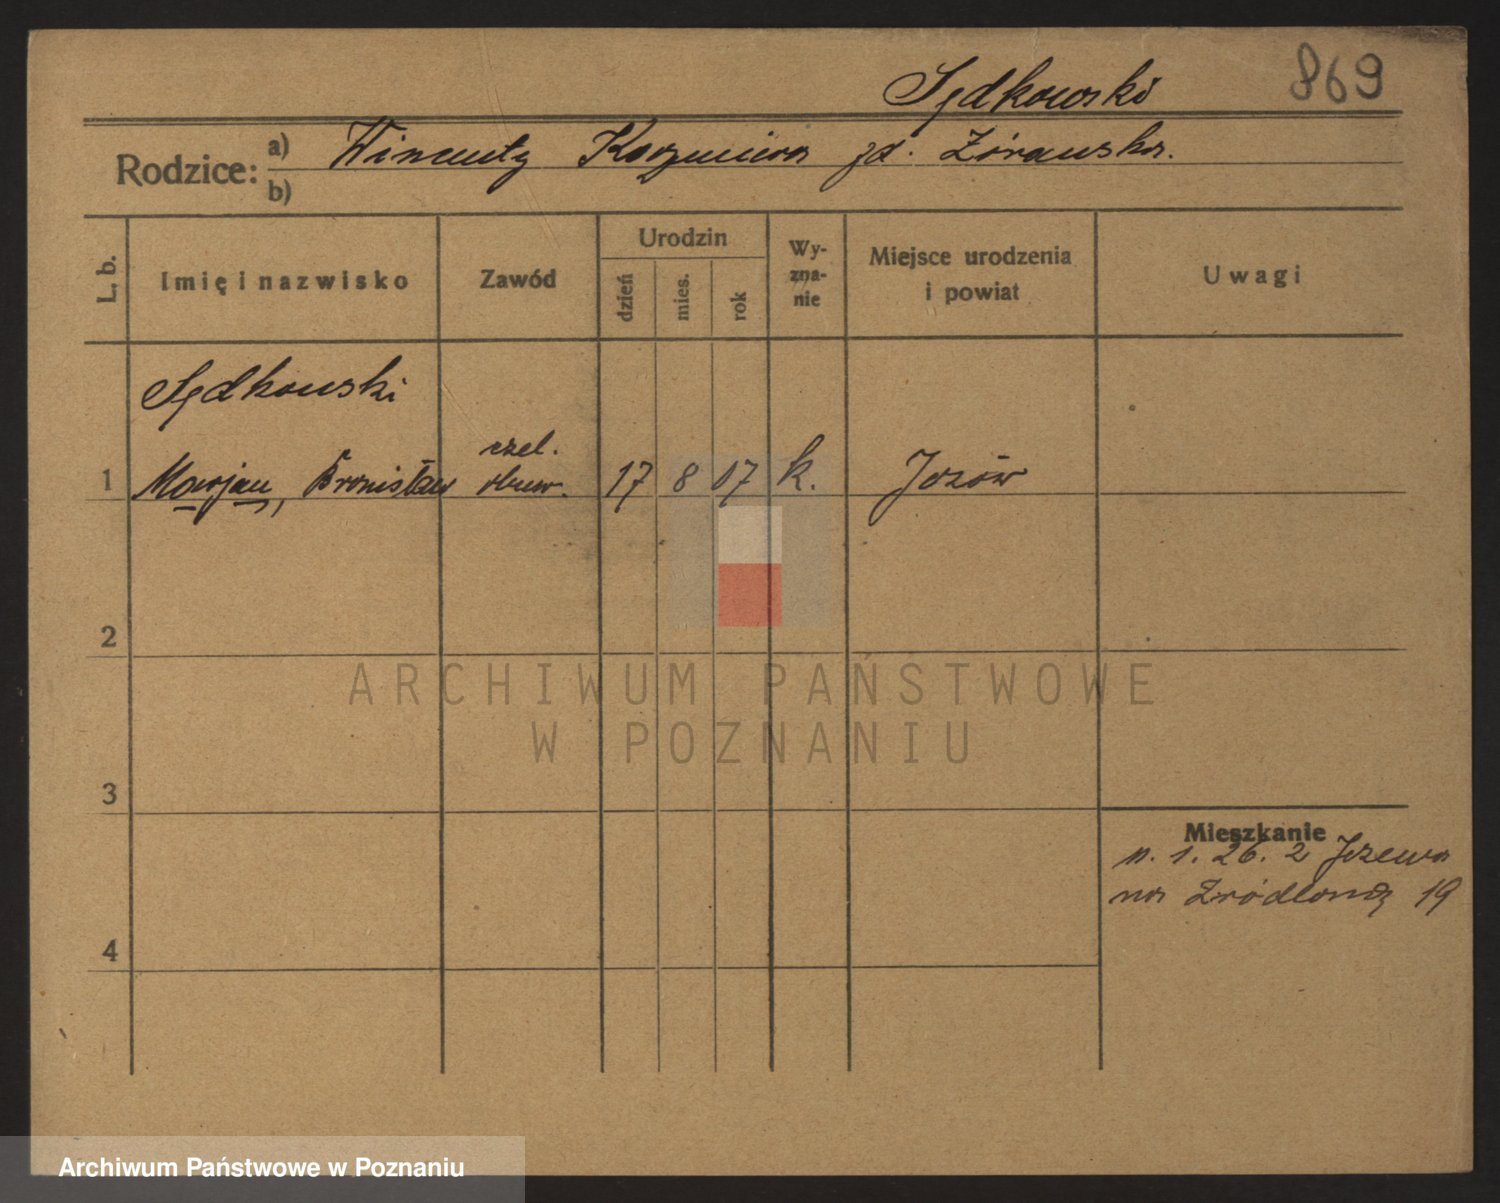 Sędkowski 869
Rodzice:
a) Wincenty Kazimiera zd. Żórawska.
b)
L. b.
Imię i nazwisko
Zawód
Urodzin
dzień
mies.
rok
Wy-
zna-
nie
Miejsce urodzenia
i powiat
Uwagi
Sędkowski
1 Marjan, Bronisław czel. obuw. 17 8 07 k.
2
3
4
Mieszkanie
1. 26. z
na Źródlaną 19
ARCHIWUM PAŃSTWOWE
W POZNANIU
Archiwum Państwowe w Poznaniu